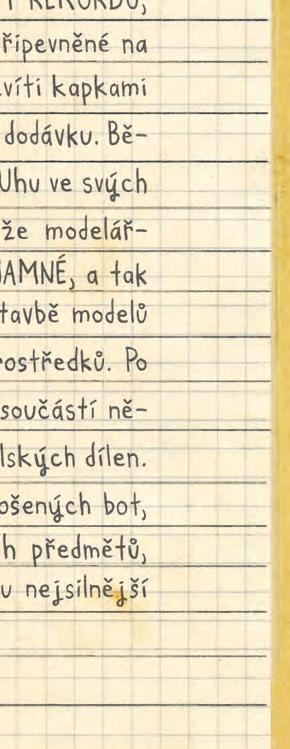 REKORDU,
řipevněné na
víti kapkami
dodávku. Bě-
Uhu ve svých
že modelář-
AMNÉ, a tak
tavbě modelů
rostředků. Po
součástí ně-
lských dílen.
ošených bot,
h předmětů,
u nejsilnější